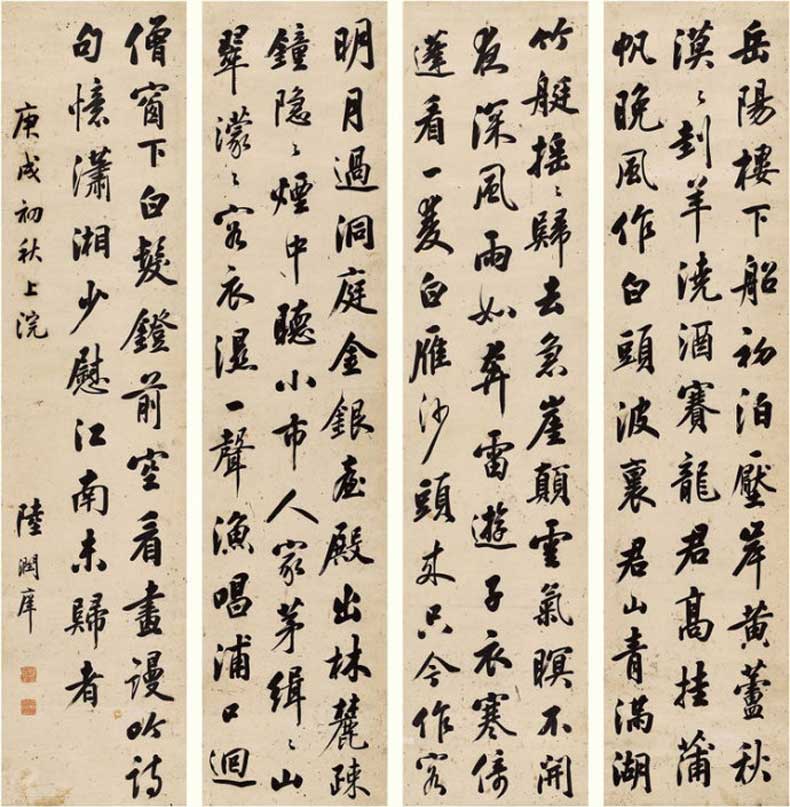 岳陽樓下船初泊壓岸黃蘆秋
漠〻刲羊澆酒賽龍君高挂蒲
帆晚風作白頭波裏君山青滿湖
竹艇搖〻歸去急崖顛雲氣暝不開
夜深風雨如奔雷遊子衣寒倚
蓬看一雙白雁沙頭來只今作客
明月過洞庭金銀臺殿出林麓疎
鐘隐〻煙中聽小市人家茅緝〻山
翠濛〻客衣濕一聲漁唱浦口迴
僧窗下白髮鐙前空看畫謾吟詩
句憶瀟湘少慰江南未歸者
庚戌初秋上浣
陸潤庠